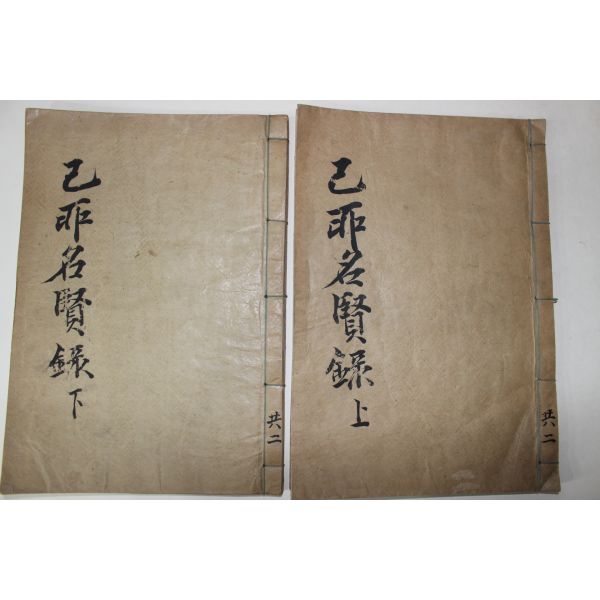 己卯名賢錄 上
共二
己卯名賢錄 下
共二